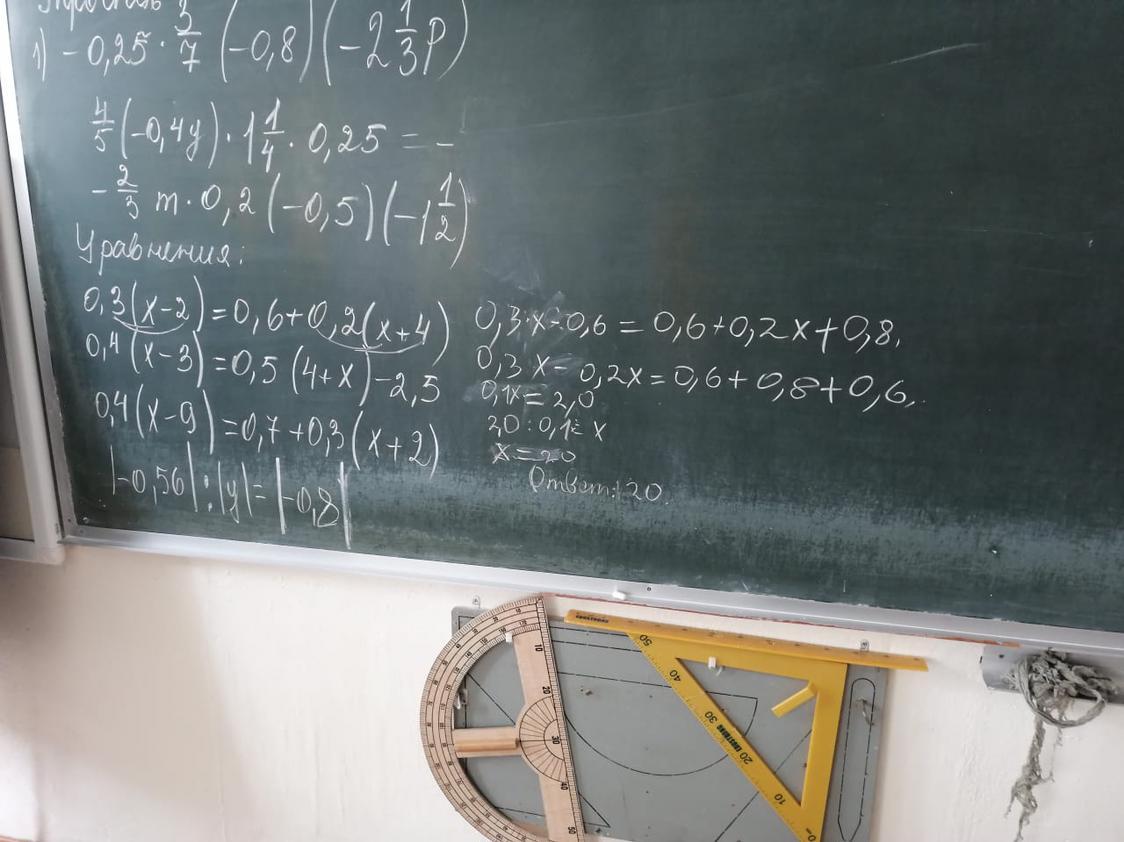 1) -0,25 · 3/7 (-0,8)(-2 1/3 p)
4/5 (-0,4y) · 1 1/4 · 0,25 = -
-2/3 m · 0,2 (-0,5)(-1 1/2)
Уравнения:
0,3(x-2)=0,6+0,2(x+4)
0,4(x-3)=0,5(4+x)-2,5
0,4(x-9)=0,7+0,3(x+2)
|-0,56| : |y| = |-0,8|
0,3·x-0,6=0,6+0,2x+0,8.
0,3·x-0,2x=0,6+0,8+0,6.
0,1x=2,0
2,0:0,1=x
x=20
Ответ: 20.
50
40
30
20
10
10
20
30
40
50